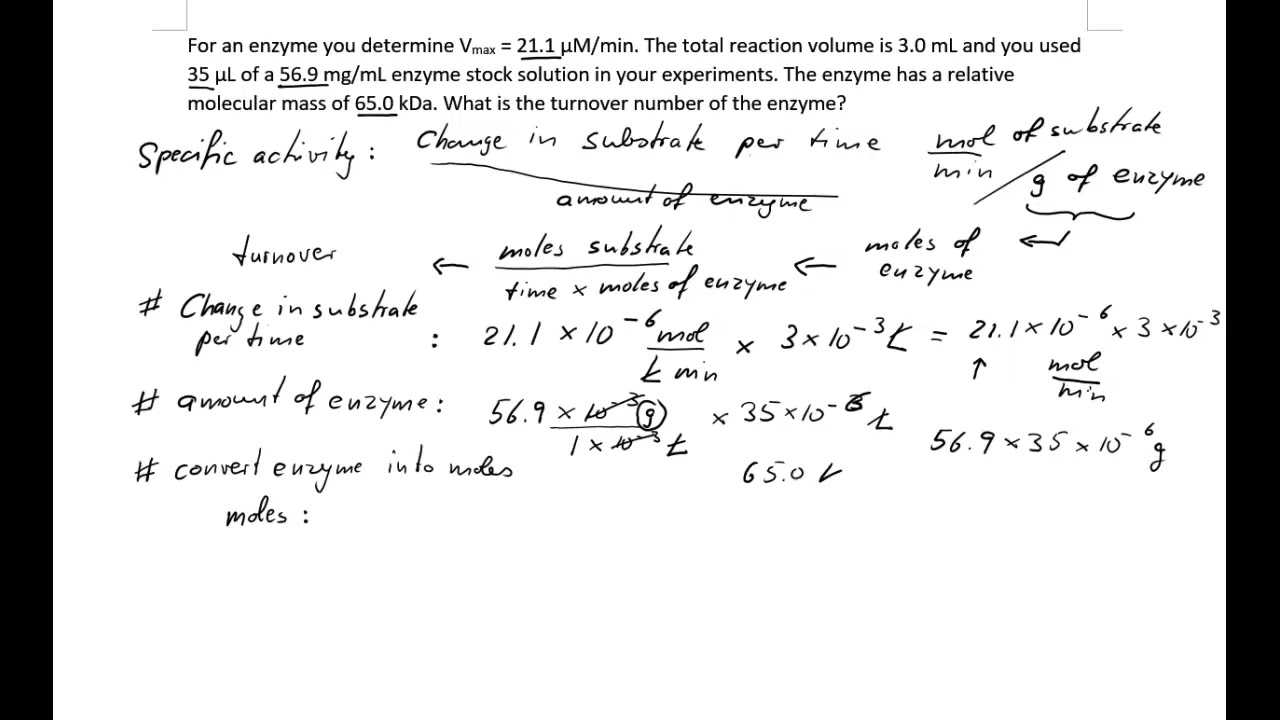 For an enzyme you determine Vmax = 21.1 μM/min. The total reaction volume is 3.0 mL and you used
35 μL of a 56.9 mg/mL enzyme stock solution in your experiments. The enzyme has a relative
molecular mass of 65.0 kDa. What is the turnover number of the enzyme?
Specific activity : Change in substrate per time mol of substrate
min g of enzyme
amount of enzyme
turnover ← moles substrate ← moles of enzyme ←
time × moles of enzyme
# Change in substrate
per time : 21.1 × 10⁻⁶ mol × 3 × 10⁻³ L = 21.1 × 10⁻⁶ × 3 × 10⁻³
L min ↑ mol
min
# amount of enzyme : 56.9 × 10⁻³ g × 35 × 10⁻⁶ L 56.9 × 35 × 10⁻⁶ g
1 × 10⁻³ L
# convert enzyme into moles 65.0
moles :